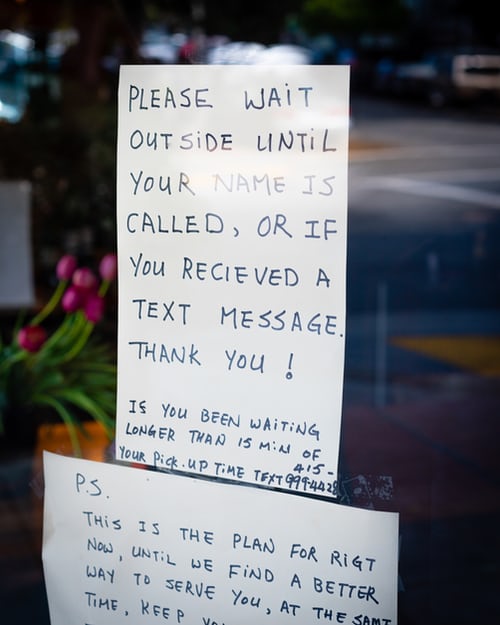 PLEASE WAIT
OUTSIDE UNTIL
YOUR NAME IS
CALLED, OR IF
YOU RECIEVED A
TEXT MESSAGE.
THANK YOU!
IS YOU BEEN WAITING
LONGER THAN 15 MIN OF
YOUR PICK.UP TIME TEXT 415-
P.S.
THIS IS THE PLAN FOR RIGT
NOW, UNTIL WE FIND A BETTER
WAY TO SERVE YOU, AT THE SAMT
TIME, KEEP